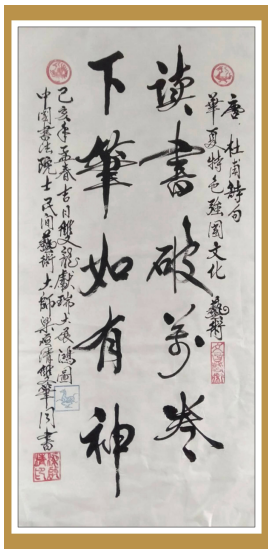 唐 杜甫诗句
華夏特色強國文化 藝術
读書破万卷
下筆如有神
己亥年孟春吉日雙龍獻瑞大展鴻圖
中国書法院士民间藝術大師
書